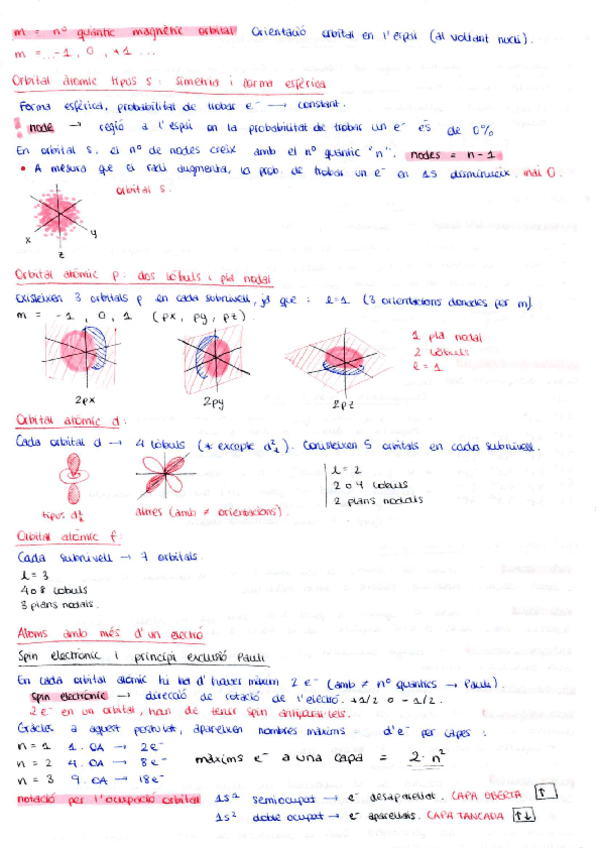 m = nº quàntic magnètic orbital Orientació orbital en l'espai (al voltant nucli).
m = ... -1, 0, +1 ...
Orbital atòmic tipus s: simetria i forma esfèrica
Forma esfèrica, probabilitat de trobar e⁻ → constant.
! node → regió a l'espai on la probabilitat de trobar un e⁻ és de 0%
En orbital s, el nº de nodes creix amb el nº quàntic "n". nodes = n-1
• A mesura que el radi augmenta, la prob. de trobar un e⁻ en 1s disminueix, mai 0.
orbital s.
x y z
Orbital atòmic p: dos lòbuls i pla nodal
Existeixen 3 orbitals p en cada subnivell, ja que: l=1 (3 orientacions donades per m)
m = -1, 0, 1 (px, py, pz).
1 pla nodal
2 lòbuls
l = 1
2px 2py 2pz
Orbital atòmic d:
Cada orbital d → 4 lòbuls (* excepte d²z). Coexisteixen 5 orbitals en cada subnivell.
l = 2
2 o 4 lòbuls
2 plans nodals
tipus d²z altres (amb ≠ orientacions)
Orbital atòmic f:
Cada subnivell → 7 orbitals.
l = 3
4 o 8 lòbuls
3 plans nodals.
Àtoms amb més d'un electró
Spin electrònic i principi exclusió Pauli
En cada orbital atòmic hi ha d'haver màxim 2 e⁻ (amb ≠ nº quàntics → Pauli).
Spin electrònic → direcció de rotació de l'electró. +1/2 o -1/2.
2 e⁻ en un orbital, han de tenir spin antiparal·lels.
Gràcies a aquest postulat, apareixen nombres màxims d'e⁻ per capes:
n = 1 1. OA → 2e⁻
n = 2 4. OA → 8e⁻ màxims e⁻ a una capa = 2·n²
n = 3 9. OA → 18e⁻
notació per l'ocupació orbital 1s¹ semiocupat → e⁻ desaparellat. CAPA OBERTA ↑
1s² doble ocupat → e⁻ aparellats. CAPA TANCADA ↑↓